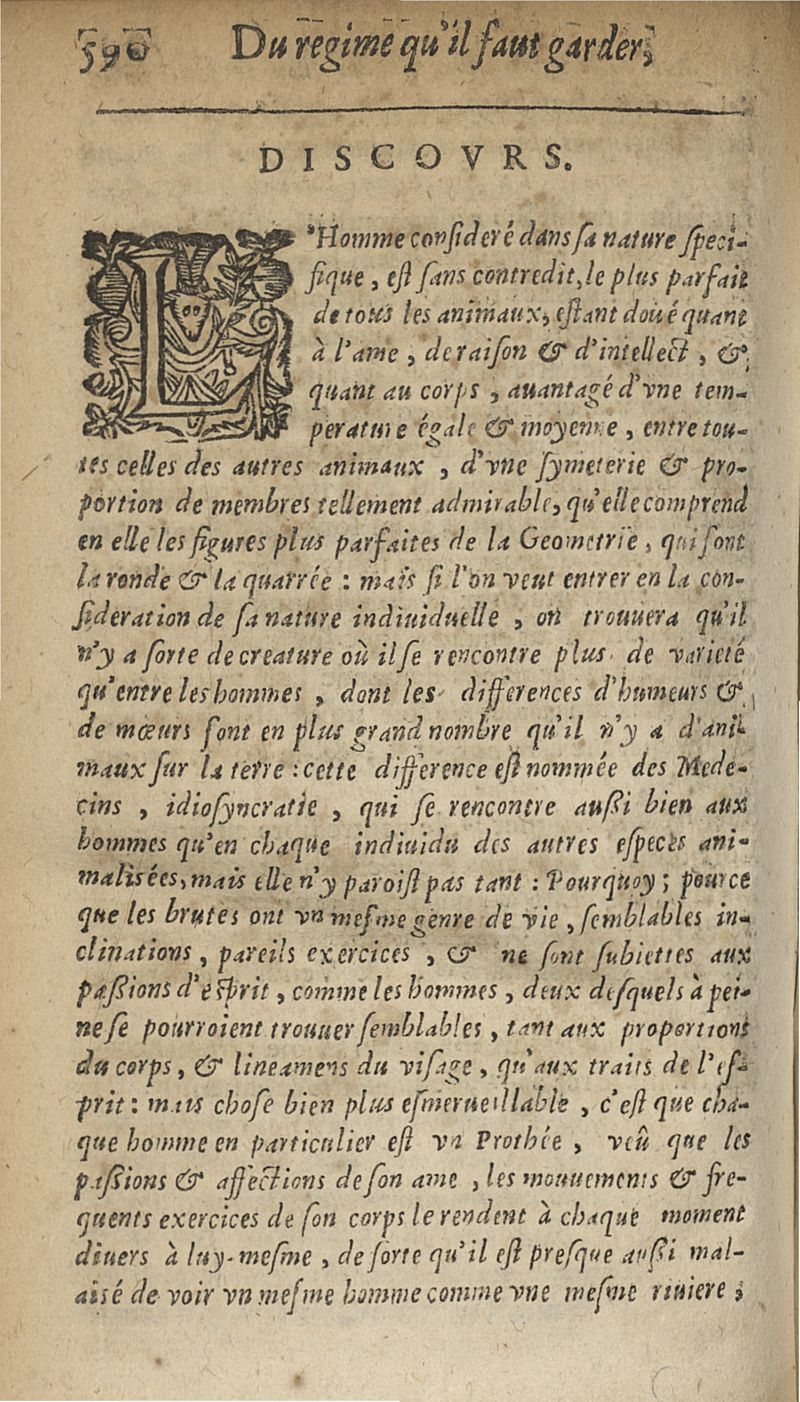 590 Du regime qu'il faut garder,
DISCOVRS.
L'Homme consideré dans sa nature speci-
fique, est sans contredit, le plus parfait
de tous les animaux, estant doüé quant
à l'ame, de raison & d'intellect, &
quant au corps, auantagé d'vne tem-
perature égale & moyenne, entre tou-
tes celles des autres animaux, d'vne symeterie & pro-
portion de membres tellement admirable, qu'elle comprend
en elle les figures plus parfaites de la Geometrie, qui sont
la ronde & la quarrée : mais si l'on veut entrer en la con-
sideration de sa nature indiuiduelle, on trouuera qu'il
n'y a sorte de creature où il se rencontre plus de varieté
qu'entre les hommes, dont les differences d'humeurs &
de mœurs sont en plus grand nombre qu'il n'y a d'ani-
maux sur la terre : cette difference est nommée des Mede-
cins, idiosyncratie, qui se rencontre aussi bien aux
hommes qu'en chaque indiuidu des autres especes ani-
malisées, mais elle n'y paroist pas tant : Pourquoy ; pource
que les brutes ont vn mesme genre de vie, semblables in-
clinations, pareils exercices, & ne sont subiettes aux
passions d'esprit, comme les hommes, deux desquels à pei-
ne se pourroient trouuer semblables, tant aux proportions
du corps, & lineamens du visage, qu'aux traits de l'es-
prit : mais chose bien plus esmerueillable, c'est que cha-
que homme en particulier est vn Prothée, veû que les
passions & affections de son ame, les mouuements & fre-
quents exercices de son corps le rendent à chaque moment
diuers à luy-mesme, de sorte qu'il est presque aussi mal-
aisé de voir vn mesme homme comme vne mesme riuiere ;